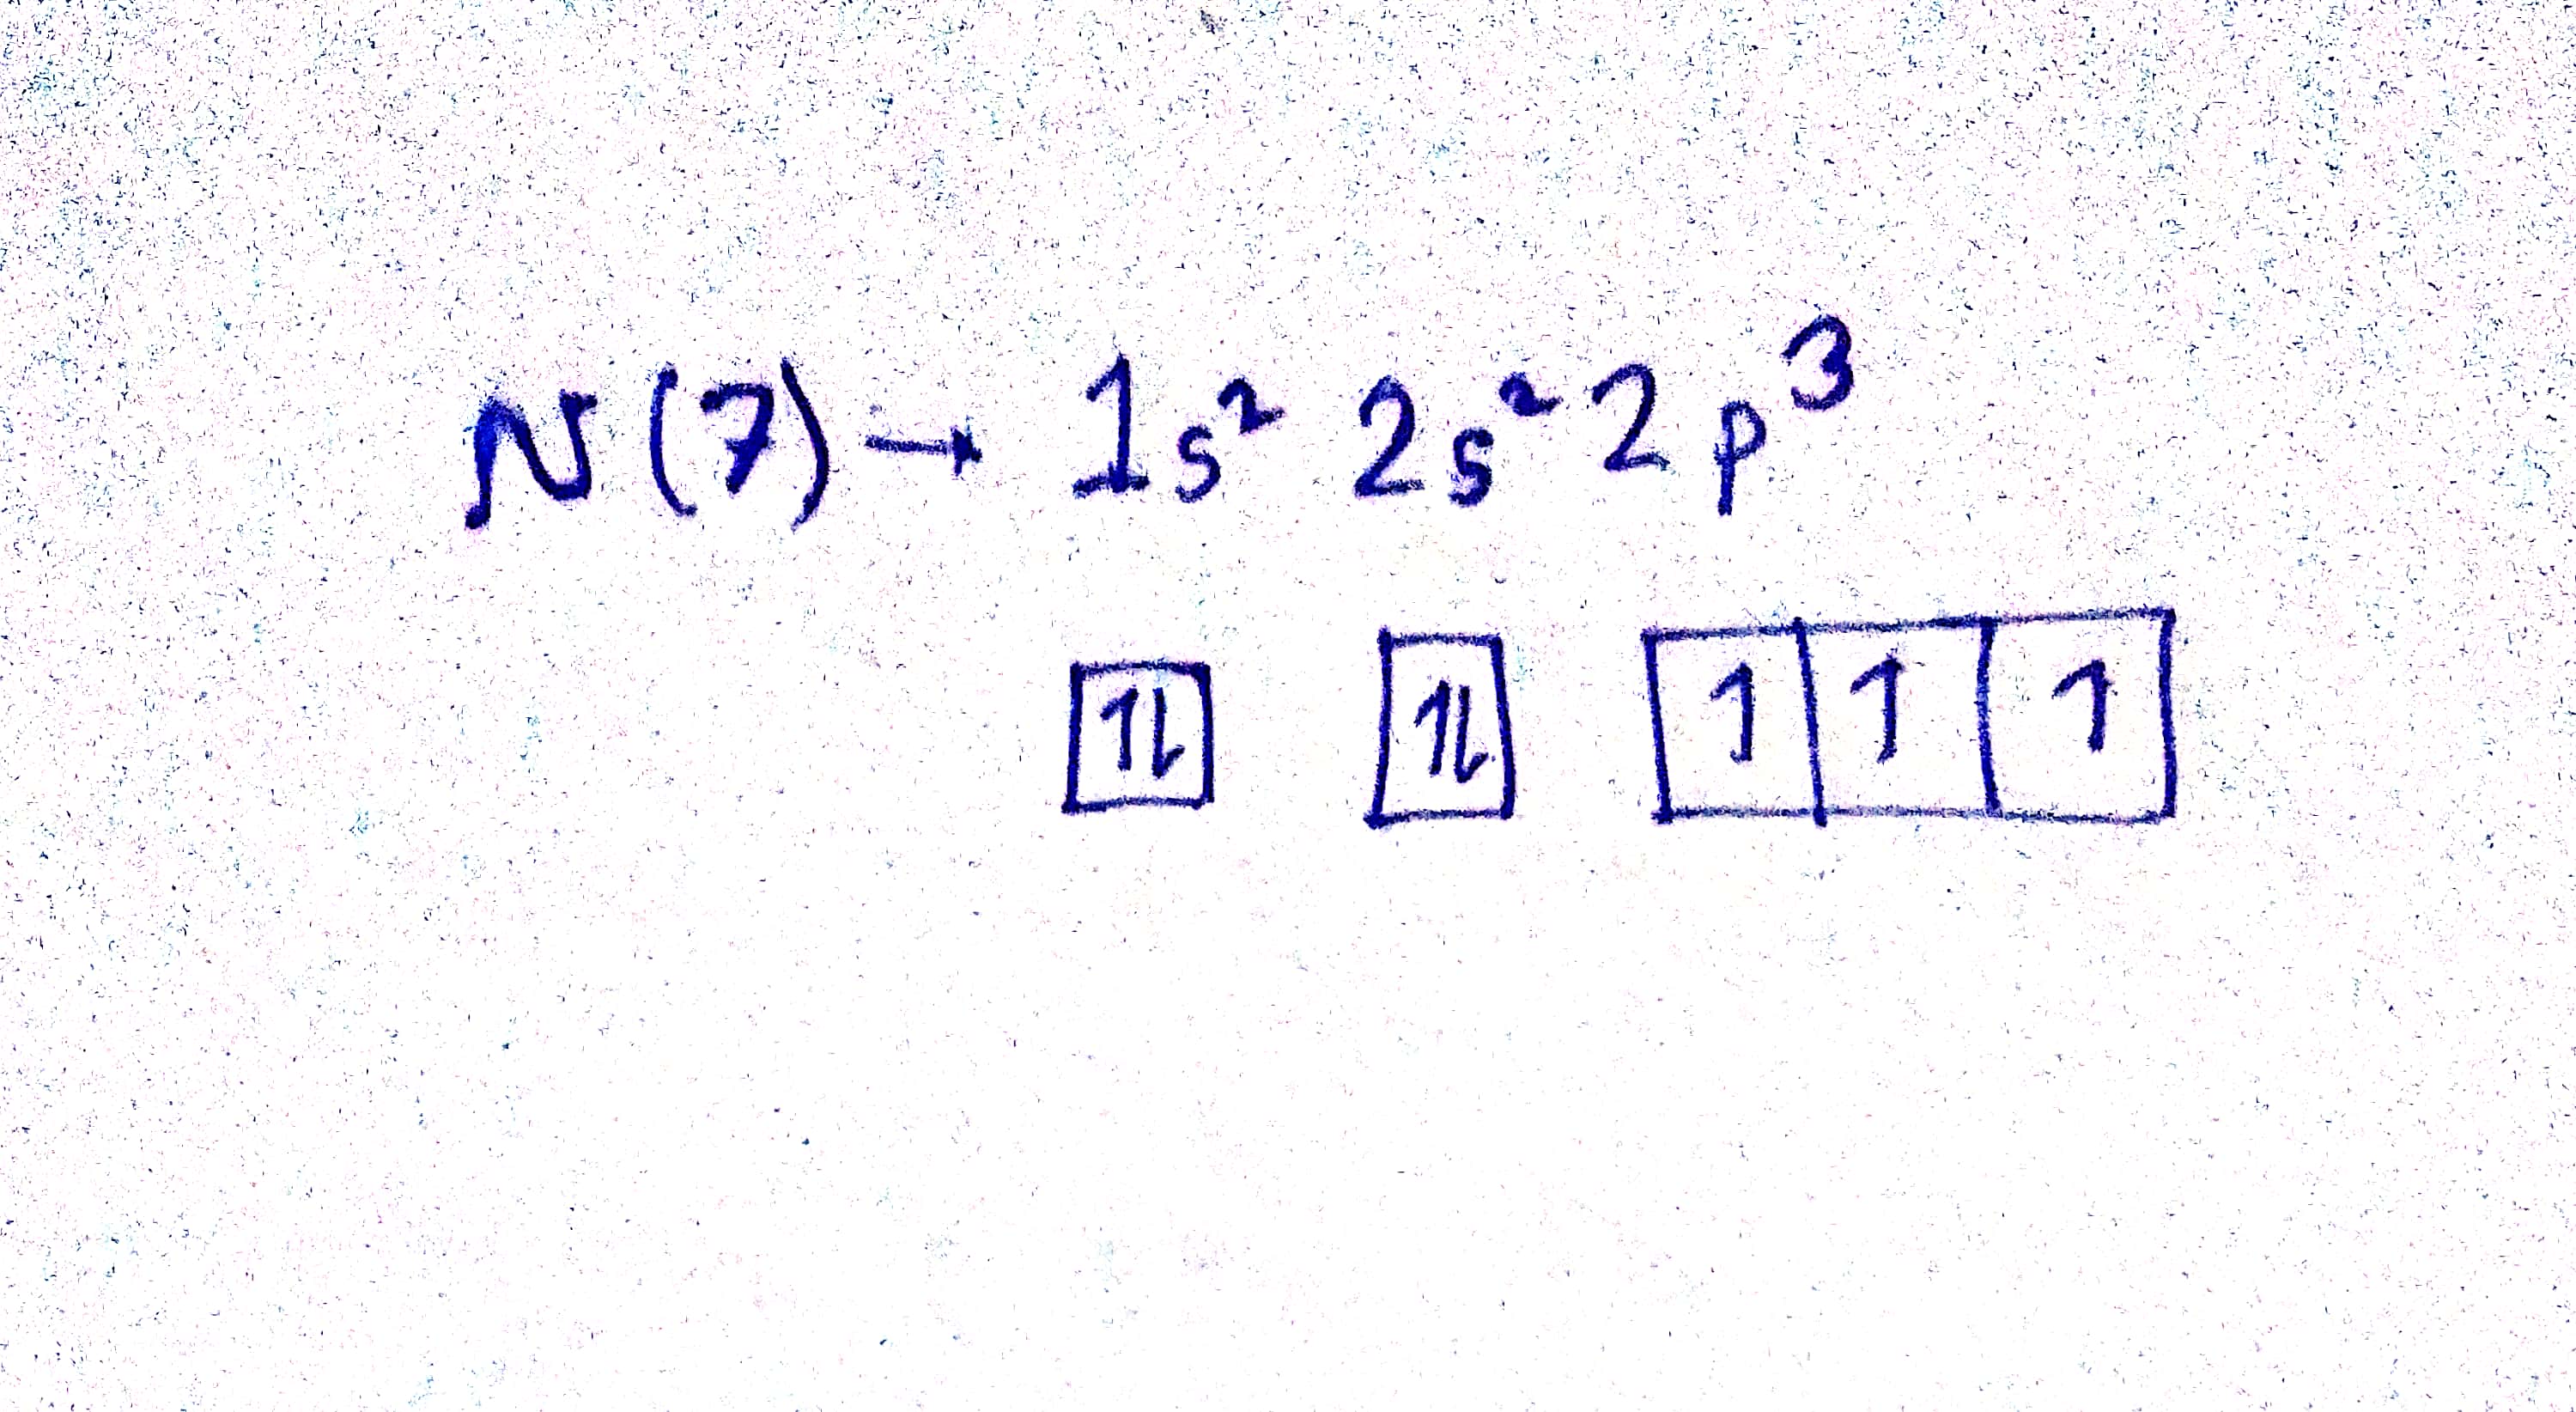 N(7) → 1s² 2s² 2p³
↿⇂ ↿⇂ ↿ ↿ ↿